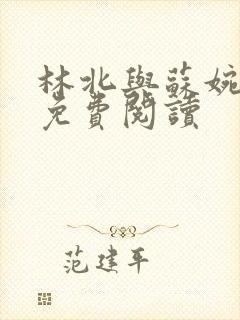 林北與蘇婉
免費閱讀
范建平